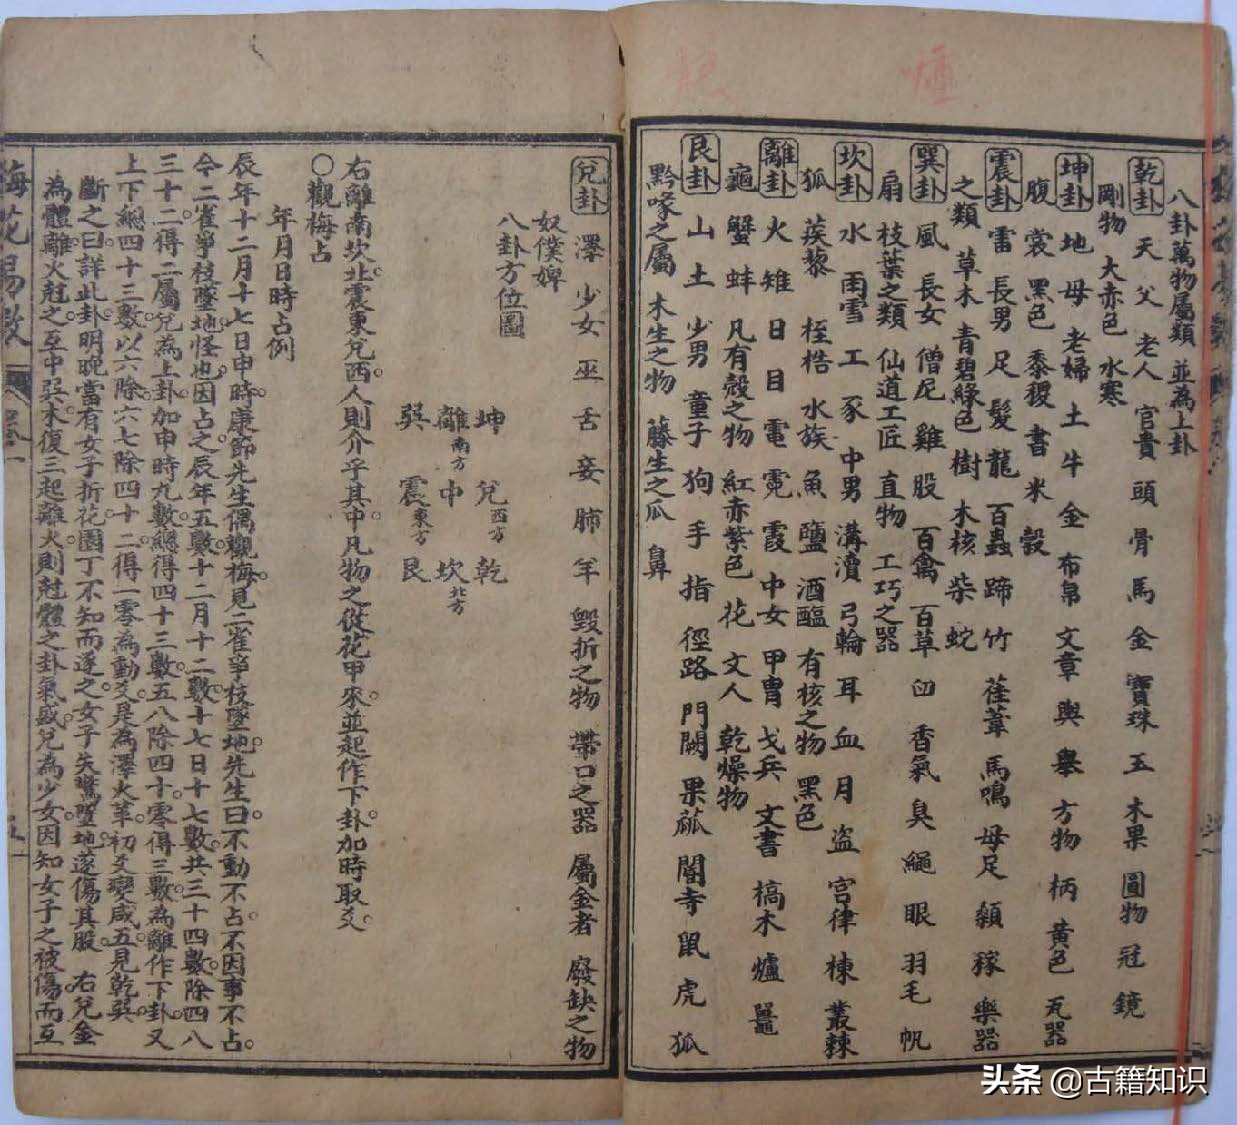 八卦萬物屬類 並為上卦
乾卦 天 父 老人 官貴 頭 骨 馬 金 寶珠 玉 木果 圓物 冠 鏡
剛物 大赤色 水寒
坤卦 地 母 老婦 土 牛 金 布帛 文章 輿 轝 方物 柄 黃色 瓦器
腹 裳 黑色 黍稷 書 米 穀
震卦 雷 長男 足 髮 龍 百蟲 蹄 竹 萑葦 馬鳴 母足 顙 稼 樂器
之類 草木 青碧綠色 樹 木核 柴 蛇
巽卦 風 長女 僧尼 雞 股 百禽 百草 臼 香氣 臭 繩 眼 羽毛 帆
扇 枝葉之類 仙道工匠 直物 工巧之器
坎卦 水 雨雪 工 豕 中男 溝瀆 弓輪 耳 血 月 盜 宮律 棟 叢棘
狐 蒺藜 桎梏 水族 魚 鹽 酒醢 有核之物 黑色
離卦 火 雉 日 目 電 霓 霞 中女 甲冑 戈兵 文書 槁木 爐 鼉
龜 蟹 蚌 凡有殼之物 紅赤紫色 花 文人 乾燥物
艮卦 山 土 少男 童子 狗 手 指 徑路 門闕 果蓏 閽寺 鼠 虎 狐
黔喙之屬 木生之物 藤生之瓜 鼻
兌卦 澤 少女 巫 舌 妾 肺 羊 毀折之物 帶口之器 屬金者 廢缺之物
奴僕婢
八卦方位圖
坤 兌西方 乾
離南方 中 坎北方
巽 震東方 艮
右離南坎北震東兌西人則介乎其中凡物之從花甲來並起作下卦加時取爻
○觀梅占
年月日時占例
辰年十二月十七日申時康節先生偶觀梅見二雀爭枝墜地先生曰不動不占不因事不占
今二雀爭枝墜地怪也因占之辰年五數十二月十二數十七日十七數共三十四數除四八
三十二得二屬兌為上卦加申時九數總得四十三數五八除四十零得三數為離作下卦又
上下總四十三數以六除六七除四十二得一零為動爻是為澤火革初爻變咸五見乾巽
斷之曰詳此卦明晚當有女子折花園丁不知而逐之女子失驚墜地遂傷其股 右兌金
為體離火尅之至中巽木復三起離火則尅體之卦氣盛兌為少女因知女子之被傷而互
梅花易數 卷一
頭条 @古籍知识